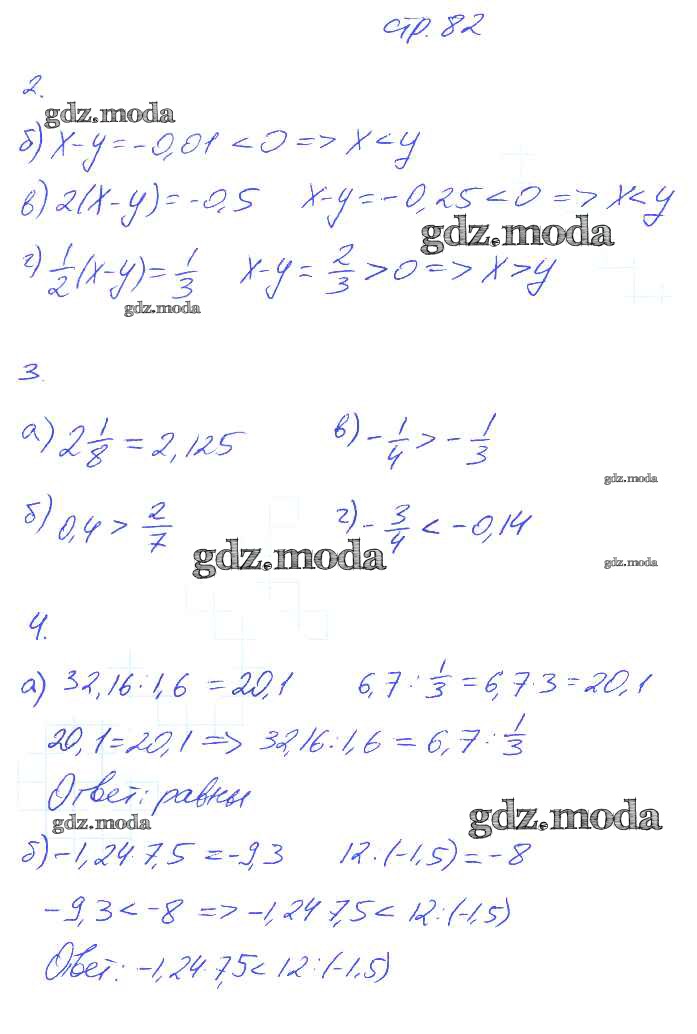 стр. 82
2.
gdz.moda
б) x-y=-0,01 < 0 => x<y
в) 2(x-y)=-0,5 x-y=-0,25<0 => x<y
gdz.moda
г) 1/2(x-y)=1/3 x-y=2/3>0 => x>y
gdz.moda
3.
а) 2 1/8 = 2,125 в) -1/4 > -1/3
gdz.moda
б) 0,4 > 2/7 г) -3/4 < -0,14
gdz.moda
gdz.moda
4.
а) 32,16:1,6 = 20,1 6,7:1/3=6,7·3=20,1
20,1=20,1 => 32,16:1,6 = 6,7:1/3
Ответ: равны
gdz.moda
gdz.moda
б) -1,24·7,5 = -9,3 12·(-1,5)=-8
-9,3<-8 => -1,24·7,5<12:(-1,5)
Ответ: -1,24·7,5<12:(-1,5)